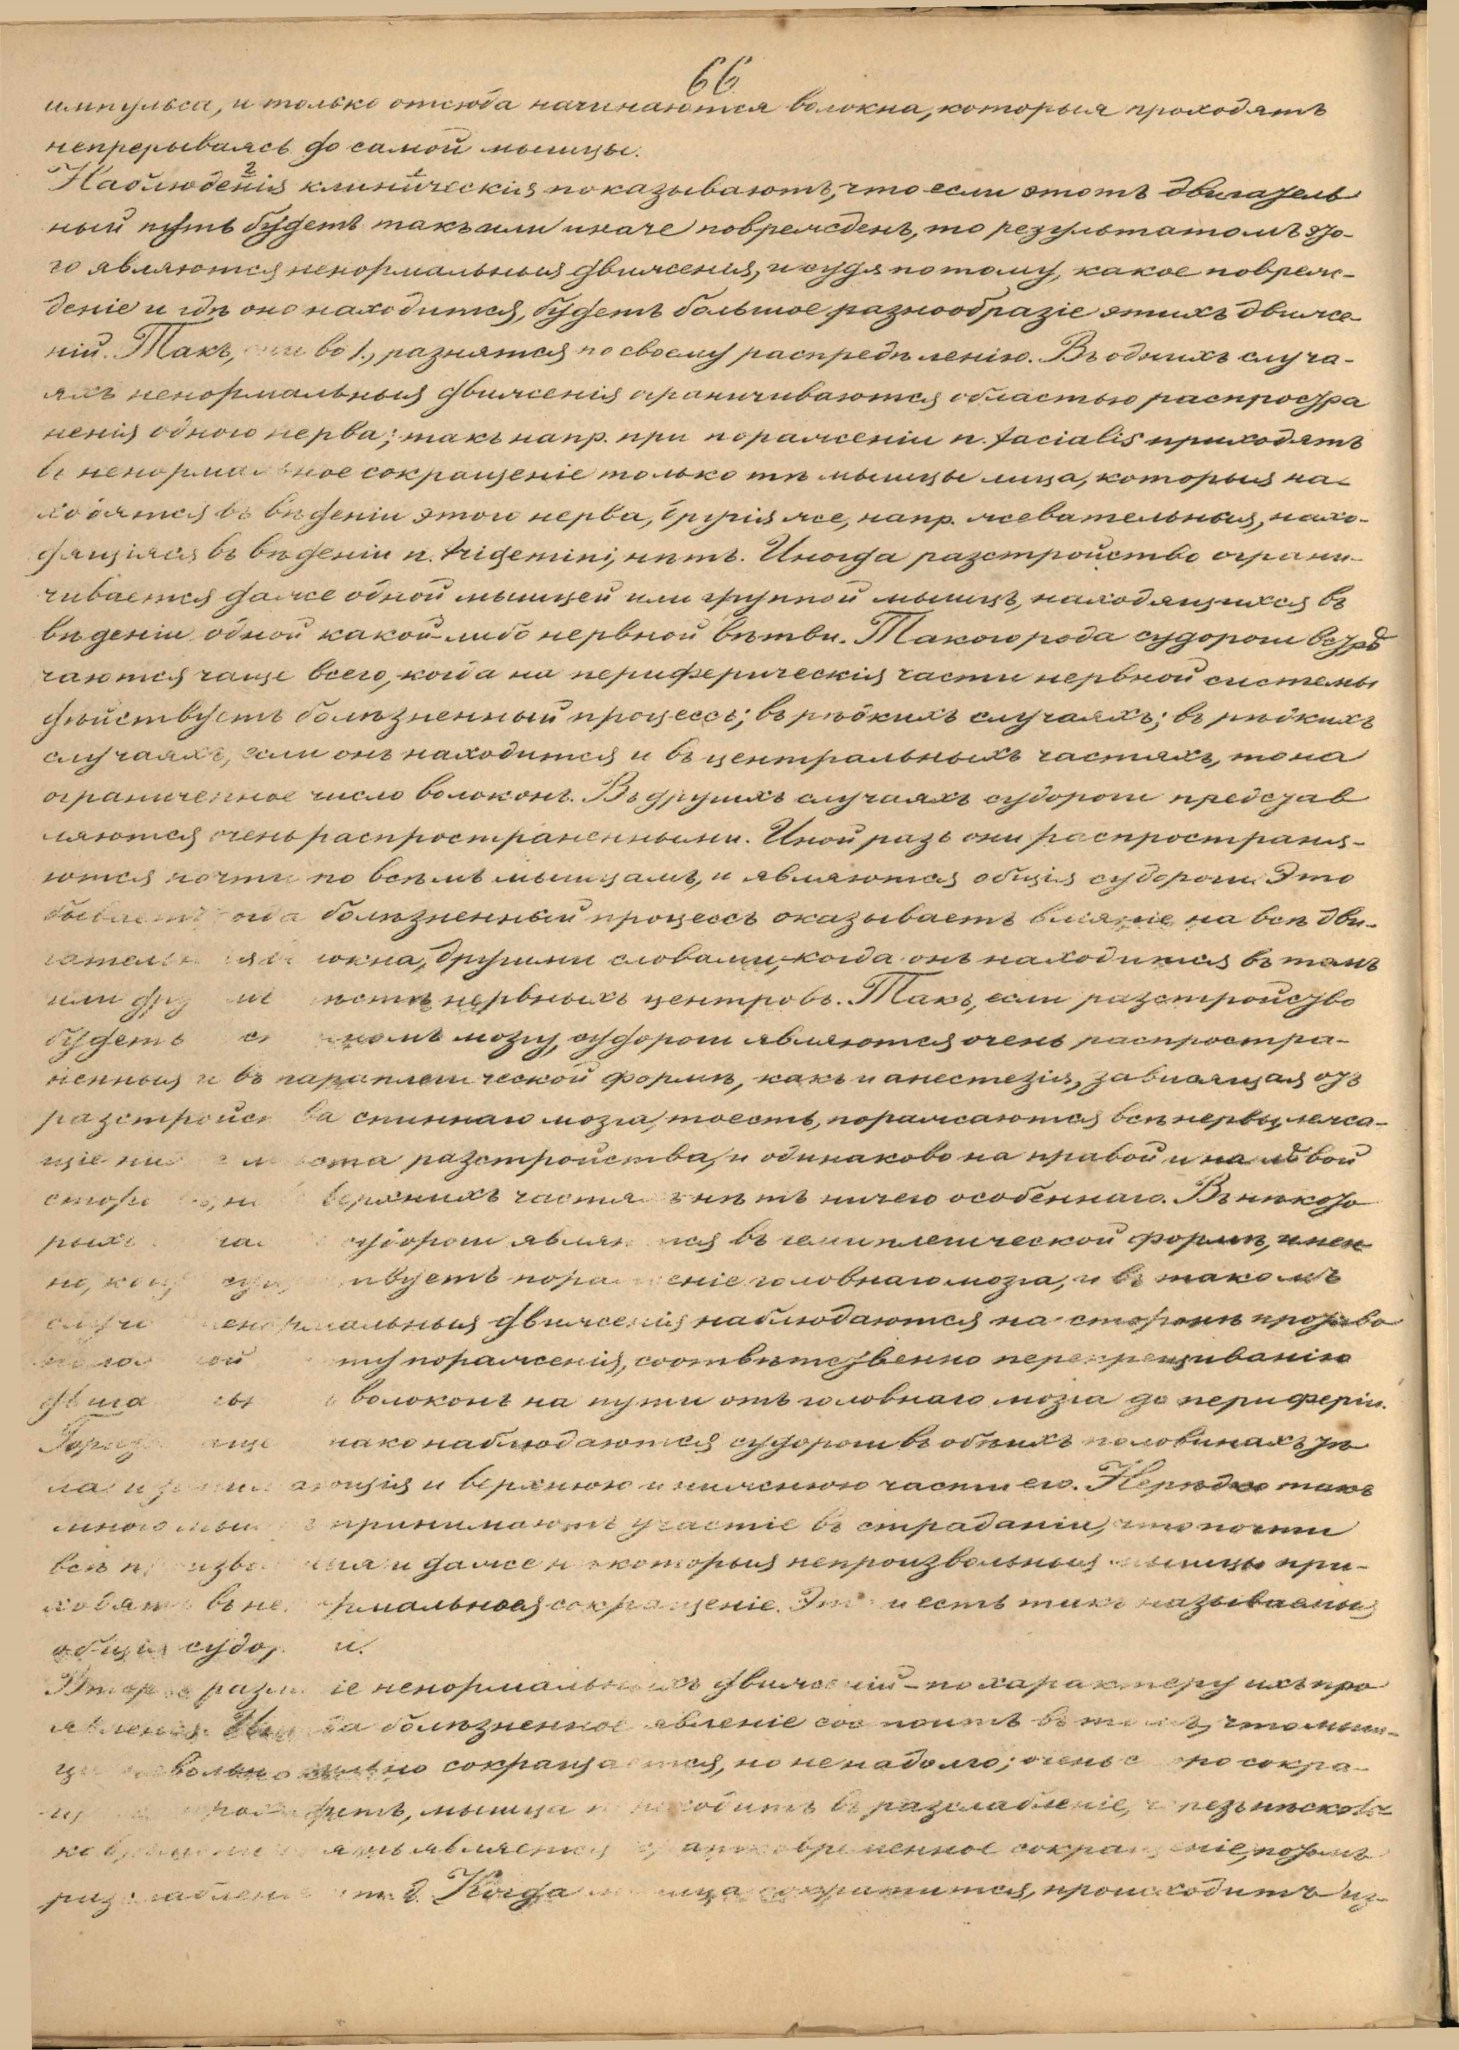 66
импульса, и только отсюда начинаются волокна, которыя проходятъ
непрерываясь до самой мышцы.
Наблюденія клиническія показываютъ, что если этотъ двигатель
ный путь будетъ такъ или иначе поврежденъ, то результатомъ это-
го являются ненормальныя движенія, и судя потому, какое повреж-
деніе и гдѣ оно находится, будетъ большое разнообразіе этихъ движе-
ній. Такъ, они во 1., разнятся по своему распредѣленію. Въ однихъ случа-
яхъ ненормальныя движенія ограничиваются областью распростра
ненія одного нерва; такъ напр. при пораженіи n. facialis приходятъ
въ ненормальное сокращеніе только тѣ мышцы лица, которыя на-
ходятся въ вѣденіи этого нерва, другія же, напр. жевательныя, нахо-
дящіяся въ вѣденіи n. trigemini, нѣтъ. Иногда разстройство ограни-
чивается даже одной мышцей или группой мышцъ, находящихся въ
вѣденіи одной какой-либо нервной вѣтви. Такого рода судороги встрѣ
чаются чаще всего, когда на периферическія части нервной системы
дѣйствуетъ болѣзненный процессъ; въ рѣдкихъ случаяхъ; въ рѣдкихъ
случаяхъ, если онъ находится и въ центральныхъ частяхъ, то на
ограниченное число волоконъ. Въ другихъ случаяхъ судороги представ
ляются очень распространенными. Иной разъ они распространя-
ются почти по всѣмъ мышцамъ, и являются общія судороги. Это
бываетъ когда болѣзненный процессъ оказываетъ вліяніе на всѣ дви-
гательн окна, другими словами, когда онъ находится въ томъ
или дру мѣстѣ нервныхъ центровъ. Такъ, если разстройство
будетъ номъ мозгу, судороги являются очень распростра-
ненныя и въ параплегической формѣ, какъ и анестезія, зависящая отъ
разстройства спиннаго мозга, тоесть, поражаются всѣ нервы, лежа-
щіе ни ста разстройства, и одинаково на правой и на лѣвой
сторо верхнихъ частяхъ нѣтъ ничего особеннаго. Въ нѣкото
рыхъ судороги являются въ гемиплегической формѣ, имен
но, ког ствуетъ пораженіе головнаго мозга, и въ такомъ
случа ненормальныя движенія наблюдаются на сторонѣ противо
полож ной ту пораженія, соотвѣтственно перекрещиванію
двига волоконъ на пути отъ головнаго мозга до периферіи.
Гораздо чаще нако наблюдаются судороги въ обѣихъ половинахъ тѣ
ла, и ающія и верхнюю и нижнюю части его. Нерѣдко такъ
много мышцъ принимаютъ участіе въ страданіи, что почти
всѣ произво ныя и даже нѣкоторыя непроизвольныя мышцы при-
ходятъ въ не рмальное сокращеніе. Это и есть такъ называемыя
общія судороги.
Второе различіе ненормальныхъ движеній – по характеру ихъ про
явленія. Иногда болѣзненное явленіе состоитъ въ томъ, что мыш-
ца сильно сокращается, но ненадолго; очень скоро сокра-
щ детъ, мышца приходитъ въ разслабленіе, черезъ нѣсколь-
ко времени опять является кратковременное сокращеніе, потомъ
разслабленіе и т. д. Когда мышца сократится, происходитъ из-